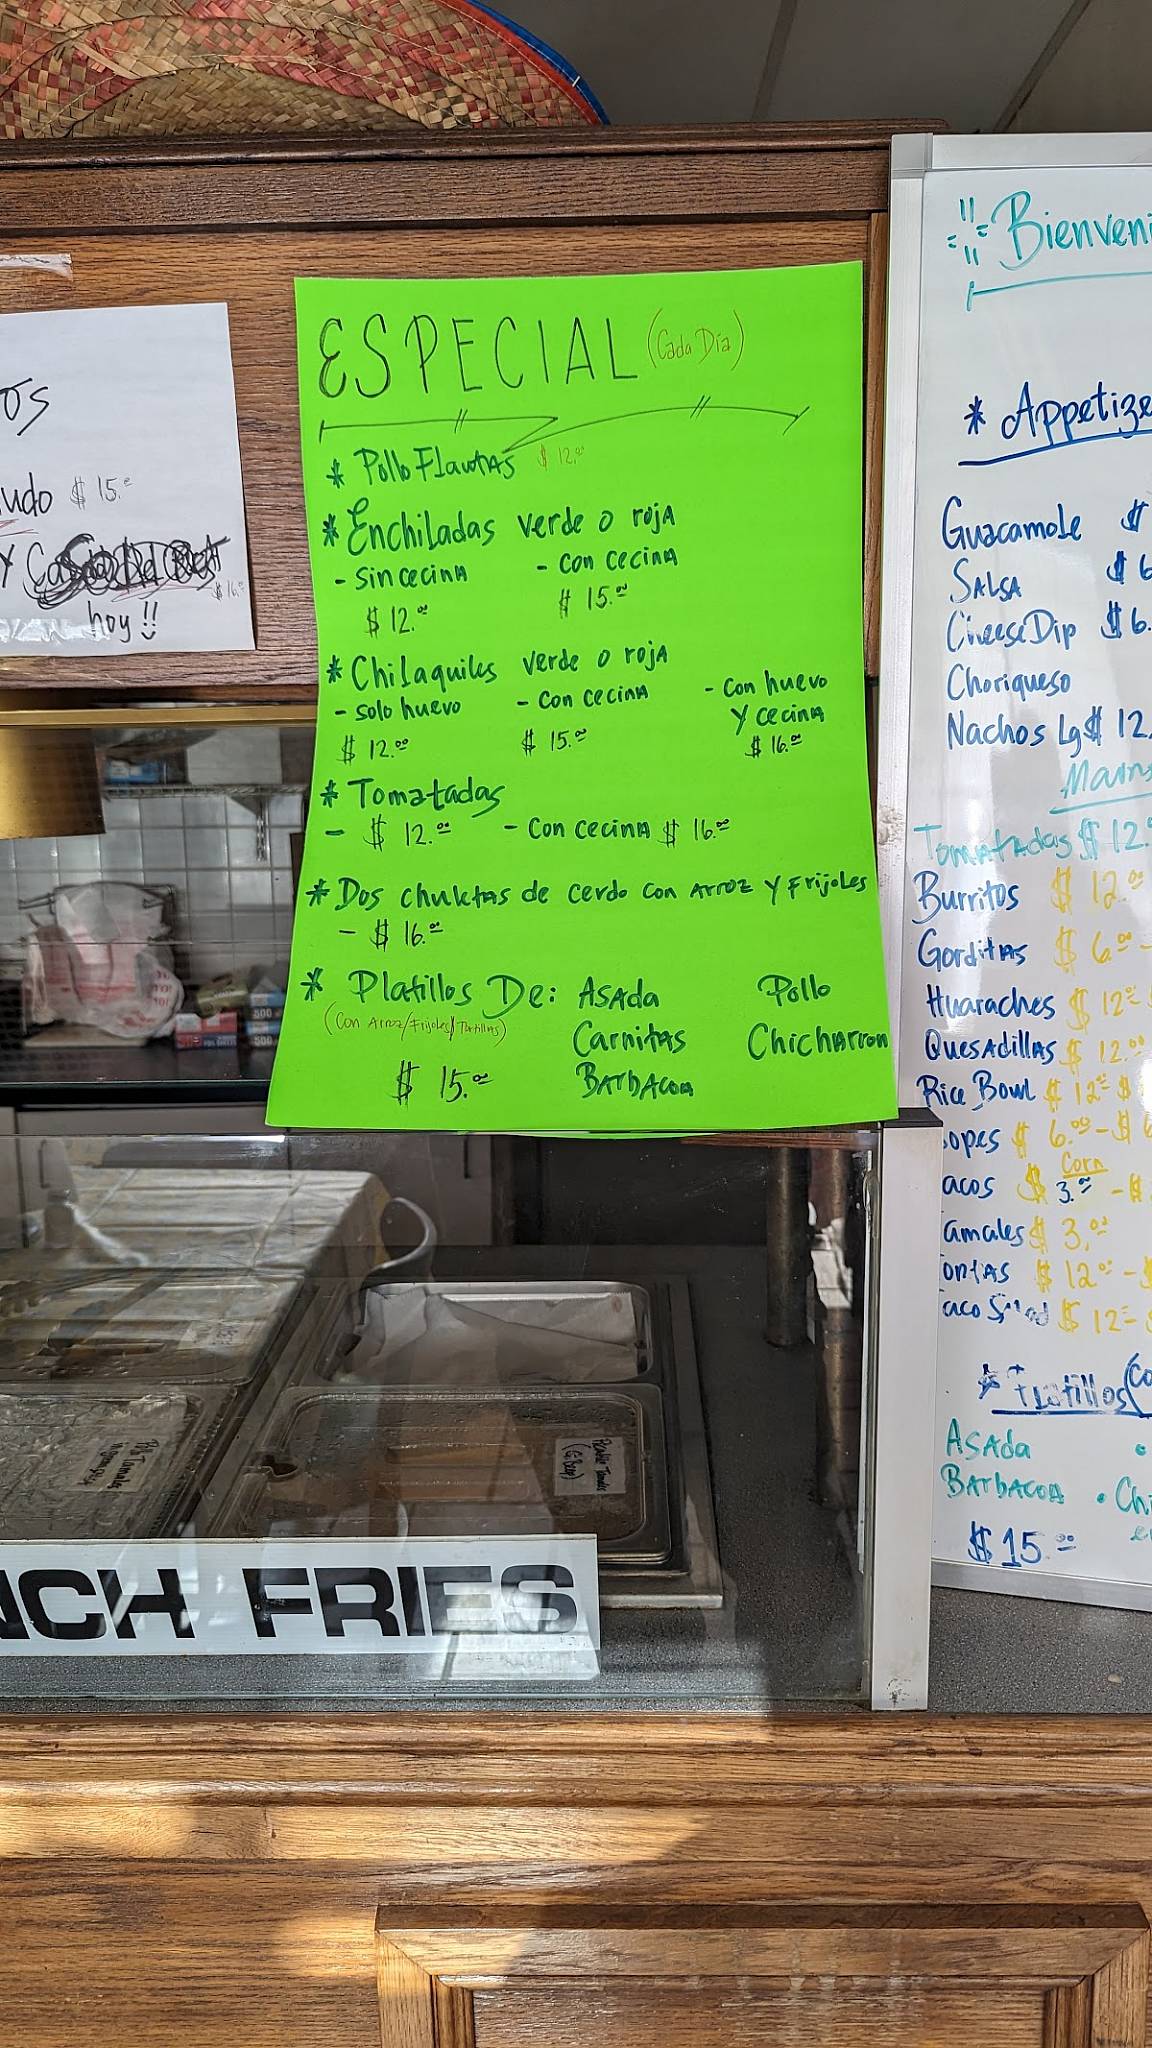 os
udo $ 15.00
Y
$ 16.00
hoy !!
ESPECIAL (Cada Día)
* Pollo Flautas $ 12.00
* Enchiladas verde o roja
- sin cecina - con cecina
$ 12.00 $ 15.00
* Chilaquiles verde o roja
- solo huevo - con cecina - con huevo
Y cecina
$ 12.00 $ 15.00 $ 16.00
* Tomatadas
- $ 12.00 - con cecina $ 16.00
* Dos chuletas de cerdo con Arroz Y Frijoles
- $ 16.00
* Platillos De: Asada Pollo
(con Arroz/Frijoles/Tortillas) Carnitas Chicharron
$ 15.00 Barbacoa
Bienveni
* Appetize
Guacamole $
Salsa $ 6
Cheese Dip $ 6.
Choriqueso
Nachos Lg $ 12.
Mains
Tomatadas $ 12.0
Burritos $ 12.00
Gorditas $ 6.00 -
Huaraches $ 12.00
Quesadillas $ 12.00
Rice Bowl $ 12.00 $
opes $ 6.00 - $ 6
Corn
acos $ 3.00 - $
amales $ 3.00
ortas $ 12.00 - $
aco Salad $ 12.00 - $
* Platillos (Co
Asada
Barbacoa • Chi
$ 15.00
500
500
Tamales
NCH FRIES